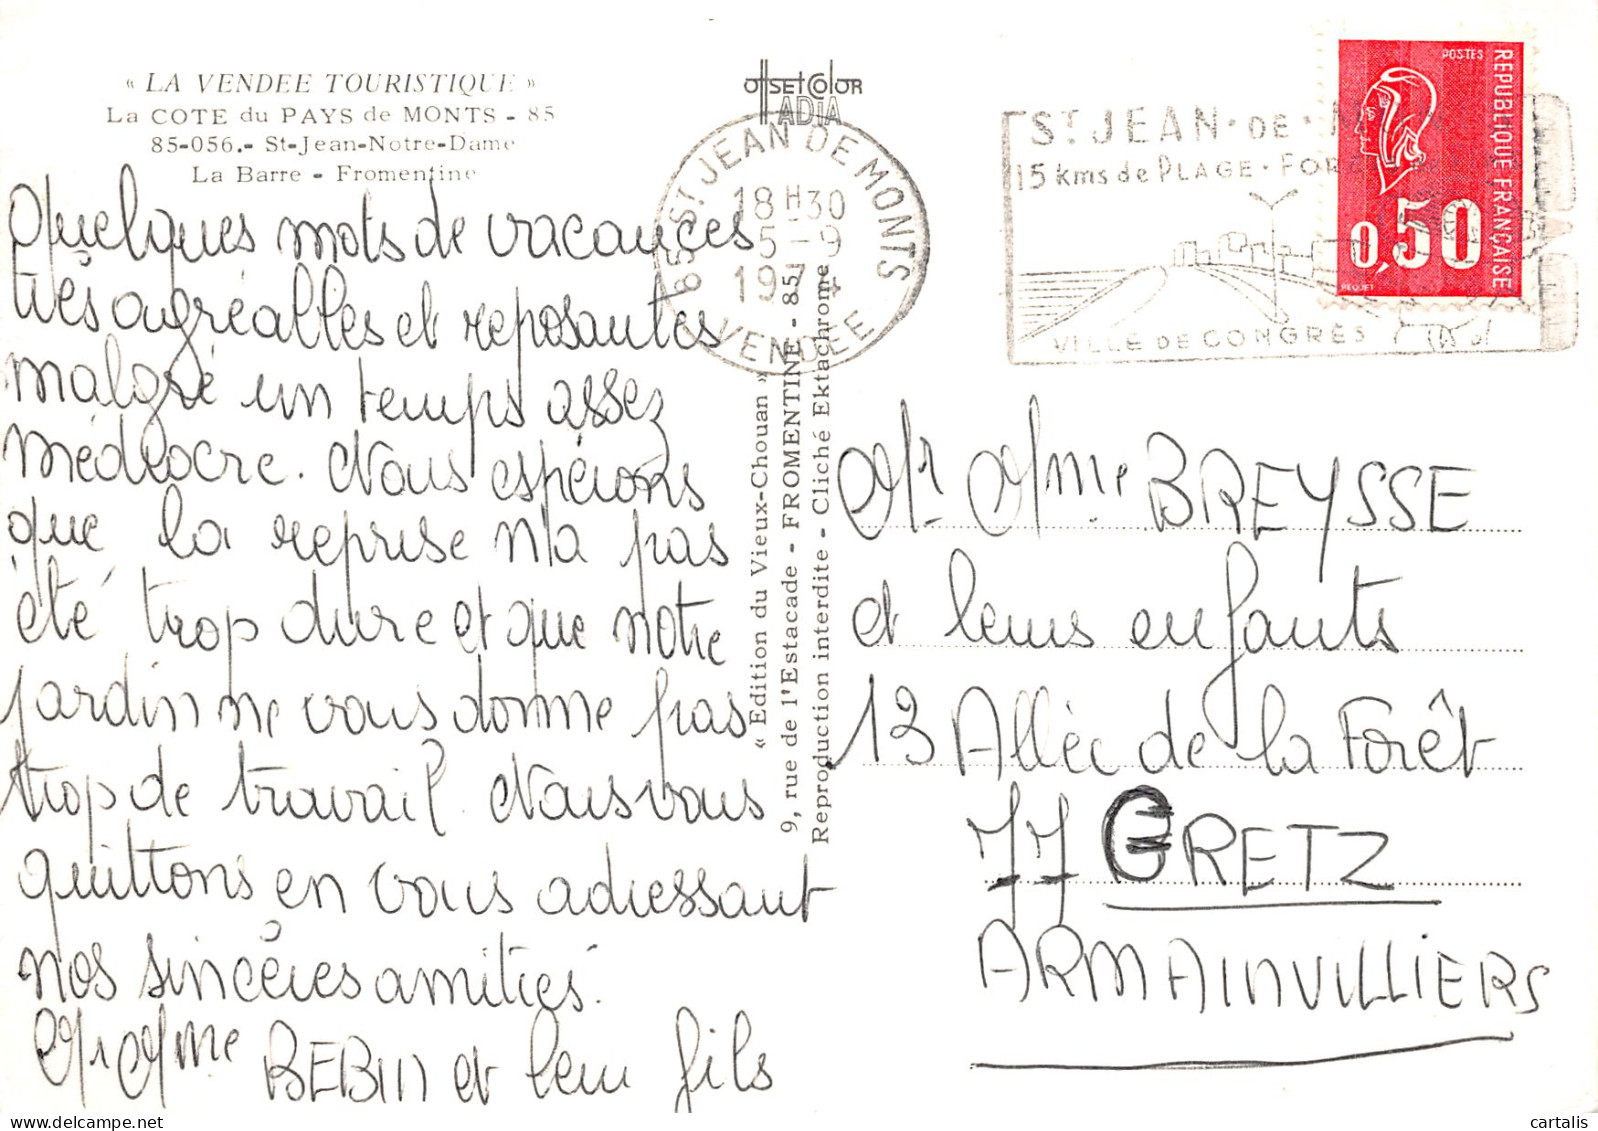 « LA VENDEE TOURISTIQUE »
La COTE du PAYS de MONTS - 85
85-056.- St-Jean-Notre-Dame
La Barre - Fromentine
Quelques mots de vacances
très agréables et reposantes
malgré un temps assez
médiocre. Nous espérons
que la reprise n'a pas
été trop dure et que notre
jardin ne vous donne pas
trop de travail. Nous vous
quittons en vous adressant
nos sincères amitiés.
Mr Mme BEBIN et leur fils
OffSET COlOR
ADIA
85 ST JEAN DE MONTS
18 H 30
5 - 9
1974
VENDEE
« Edition du Vieux-Chouan »
9, rue de l'Estacade - FROMENTINE - 85
Reproduction interdite - Cliché Ektachrome
ST JEAN · DE ·
15 kms de PLAGE ·
VILLE DE CONGRÈS
POSTES
REPUBLIQUE FRANÇAISE
0,50
BEQUET
Mr Mme BREYSSE
et leurs enfants
13 Allée de la Forêt
77 GRETZ
ARMAINVILLIERS
cartalis